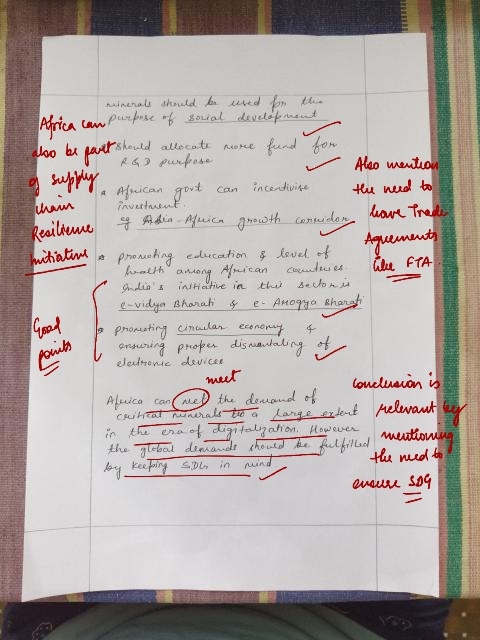 minerals should be used for the
purpose of social development
Should allocate more fund for
R&D purpose
• African govt can incentivise
investment.
eg Asia-Africa growth corridor
• promoting education & level of
health among African countries.
India's initiative in this sector is
e-vidya Bharati & e-Arogya Bharati
• promoting circular economy &
ensuring proper dismantaling of
electronic devices
meet
Africa can met the demand of
critical minerals to a large extent
in the era of digitalization. However
the global demands should be fulfilled
by keeping SDGs in mind
Africa can
also be part
of supply
chain
Resilience
Initiative
Good
points
Also mention
the need to
have Trade
Agreements
like FTA.
Conclusion is
relevant by
mentioning
the need to
ensure SDG